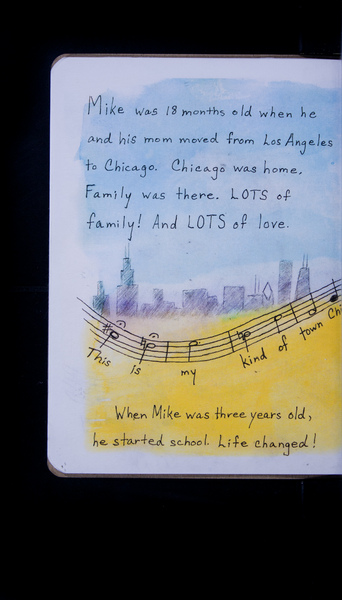 Mike was 18 months old when he
and his mom moved from Los Angeles
to Chicago. Chicago was home.
Family was there. LOTS of
family! And LOTS of love.
This is my kind of town
When Mike was three years old,
he started school. Life changed!